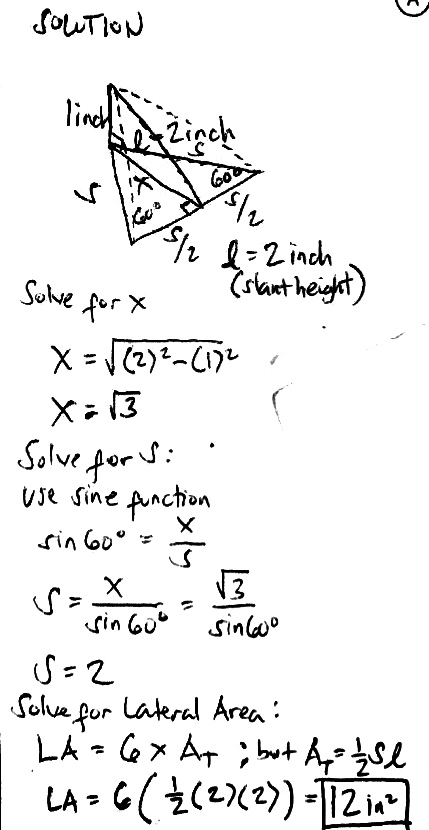 SOLUTION
A
1inch
l = 2inch
s
s
x
60°
60°
s/2
s/2
l = 2 inch
(slant height)
Solve for x
x = √(2)²-(1)²
x = √3
Solve for s:
use sine function
sin 60° = x/s
s = x/sin 60° = √3/sin 60°
s = 2
Solve for Lateral Area:
LA = 6 x A_T ; but A_T = 1/2 sl
LA = 6(1/2(2)(2)) = 12 in²